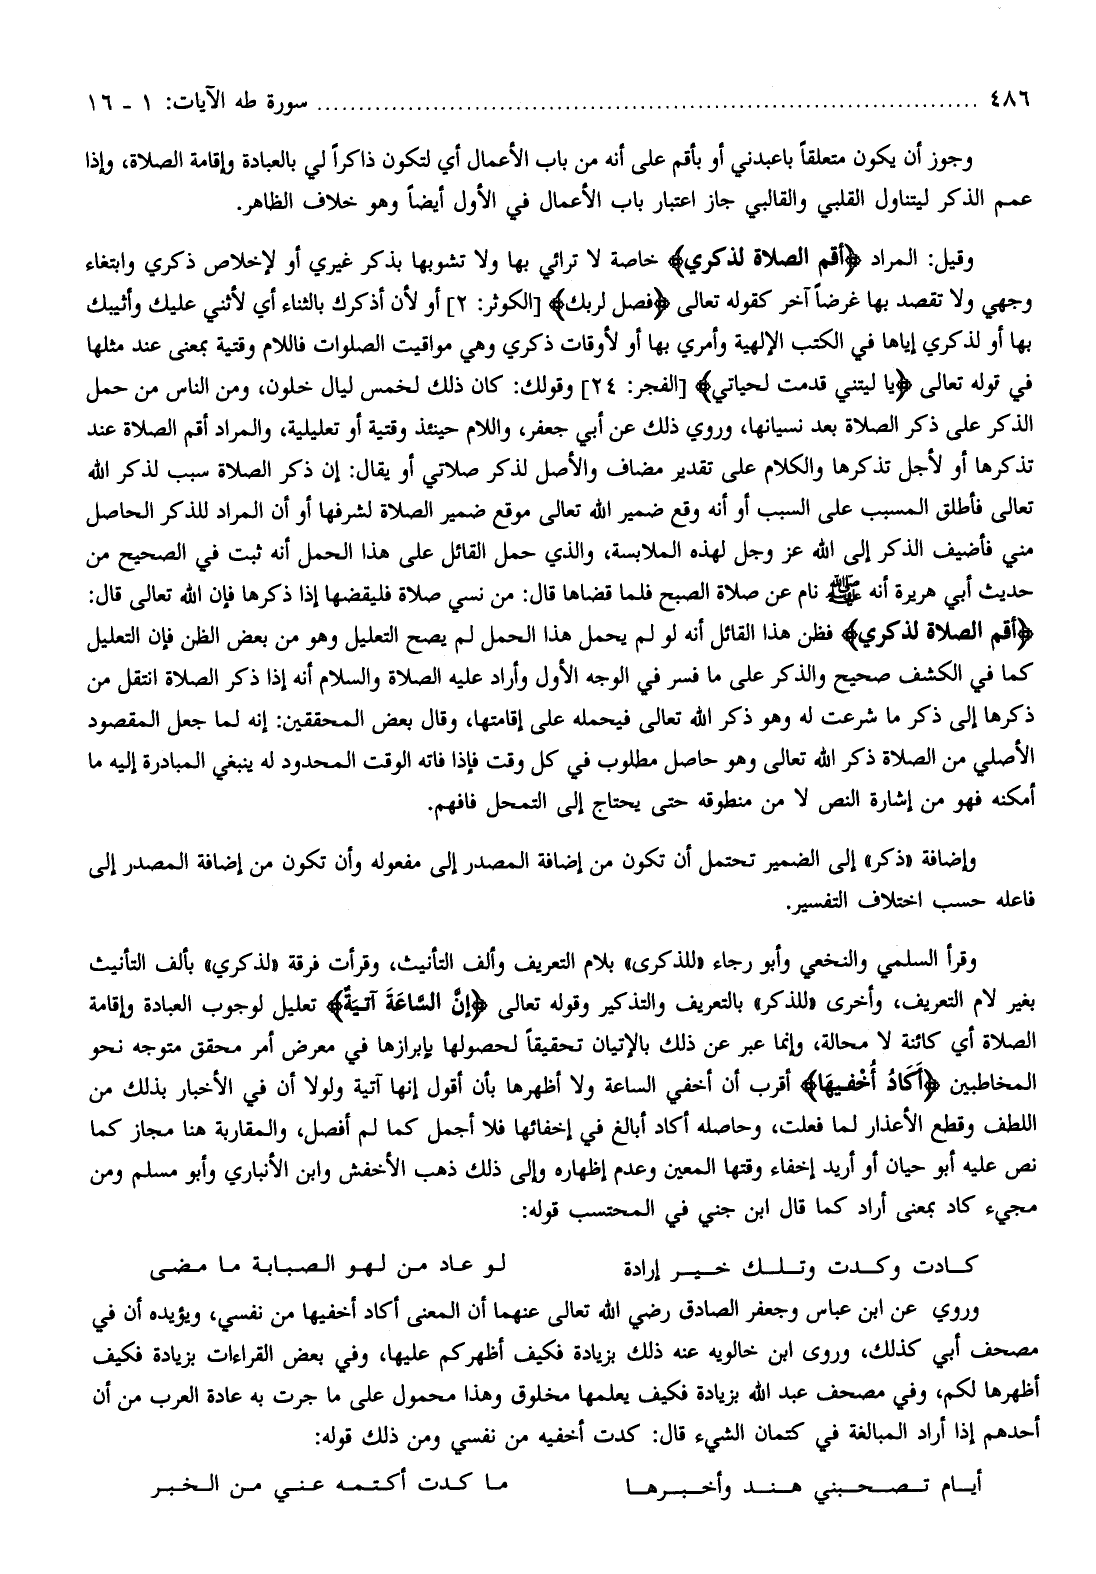 ٤٨٦ ........................................................................ سورة طه الآيات: ١ - ١٦
وجوز أن يكون متعلقاً باعبدني أو بأقم على أنه من باب الأعمال أي لتكون ذاكراً لي بالعبادة وإقامة الصلاة، وإذا
عمم الذكر ليتناول القلبي والقالبي جاز اعتبار باب الأعمال في الأول أيضاً وهو خلاف الظاهر.
وقيل: المراد ﴿أقم الصلاة لذكري﴾ خاصة لا ترائي بها ولا تشوبها بذكر غيري أو لإخلاص ذكري وابتغاء
وجهي ولا تقصد بها غرضاً آخر كقوله تعالى ﴿فصل لربك﴾ [الكوثر: ٢] أو لأن أذكرك بالثناء أي لأثني عليك وأثيبك
بها أو لذكري إياها في الكتب الإلهية وأمري بها أو لأوقات ذكري وهي مواقيت الصلوات فاللام وقتية بمعنى عند مثلها
في قوله تعالى ﴿يا ليتني قدمت لحياتي﴾ [الفجر: ٢٤] وقولك: كان ذلك لخمس ليال خلون، ومن الناس من حمل
الذكر على ذكر الصلاة بعد نسيانها، وروي ذلك عن أبي جعفر، واللام حينئذ وقتية أو تعليلية، والمراد أقم الصلاة عند
تذكرها أو لأجل تذكرها والكلام على تقدير مضاف والأصل لذكر صلاتي أو يقال: إن ذكر الصلاة سبب لذكر الله
تعالى فأطلق المسبب على السبب أو أنه وقع ضمير الله تعالى موقع ضمير الصلاة لشرفها أو أن المراد للذكر الحاصل
مني فأضيف الذكر إلى الله عز وجل لهذه الملابسة، والذي حمل القائل على هذا الحمل أنه ثبت في الصحيح من
حديث أبي هريرة أنه ﷺ نام عن صلاة الصبح فلما قضاها قال: من نسي صلاة فليقضها إذا ذكرها فإن الله تعالى قال:
﴿أقم الصلاة لذكري﴾ فظن هذا القائل أنه لو لم يحمل هذا الحمل لم يصح التعليل وهو من بعض الظن فإن التعليل
كما في الكشف صحيح والذكر على ما فسر في الوجه الأول وأراد عليه الصلاة والسلام أنه إذا ذكر الصلاة انتقل من
ذكرها إلى ذكر ما شرعت له وهو ذكر الله تعالى فيحمله على إقامتها، وقال بعض المحققين: إنه لما جعل المقصود
الأصلي من الصلاة ذكر الله تعالى وهو حاصل مطلوب في كل وقت فإذا فاته الوقت المحدود له ينبغي المبادرة إليه ما
أمكنه فهو من إشارة النص لا من منطوقه حتى يحتاج إلى التمحل فافهم.
وإضافة «ذكر» إلى الضمير تحتمل أن تكون من إضافة المصدر إلى مفعوله وأن تكون من إضافة المصدر إلى
فاعله حسب اختلاف التفسير.
وقرأ السلمي والنخعي وأبو رجاء «للذكرى» بلام التعريف وألف التأنيث، وقرأت فرقة «لذكري» بألف التأنيث
بغير لام التعريف، وأخرى «للذكر» بالتعريف والتذكير وقوله تعالى ﴿إنَّ السَّاعَةَ آتيَةٌ﴾ تعليل لوجوب العبادة وإقامة
الصلاة أي كائنة لا محالة، وإنما عبر عن ذلك بالإتيان تحقيقاً لحصولها بإبرازها في معرض أمر محقق متوجه نحو
المخاطبين ﴿أَكَادُ أُخْفيهَا﴾ أقرب أن أخفي الساعة ولا أظهرها بأن أقول إنها آتية ولولا أن في الأخبار بذلك من
اللطف وقطع الأعذار لما فعلت، وحاصله أكاد أبالغ في إخفائها فلا أجمل كما لم أفصل، والمقاربة هنا مجاز كما
نص عليه أبو حيان أو أريد إخفاء وقتها المعين وعدم إظهاره وإلى ذلك ذهب الأخفش وابن الأنباري وأبو مسلم ومن
مجيء كاد بمعنى أراد كما قال ابن جني في المحتسب قوله:
كادت وكدت وتلك خير إرادة لو عاد من لهو الصبابة ما مضى
وروي عن ابن عباس وجعفر الصادق رضي الله تعالى عنهما أن المعنى أكاد أخفيها من نفسي، ويؤيده أن في
مصحف أبي كذلك، وروى ابن خالويه عنه ذلك بزيادة فكيف أظهركم عليها، وفي بعض القراءات بزيادة فكيف
أظهرها لكم، وفي مصحف عبد الله بزيادة فكيف يعلمها مخلوق وهذا محمول على ما جرت به عادة العرب من أن
أحدهم إذا أراد المبالغة في كتمان الشيء قال: كدت أخفيه من نفسي ومن ذلك قوله:
أيام تصحبني هند وأخبرها ما كدت أكتمه عني من الخبر